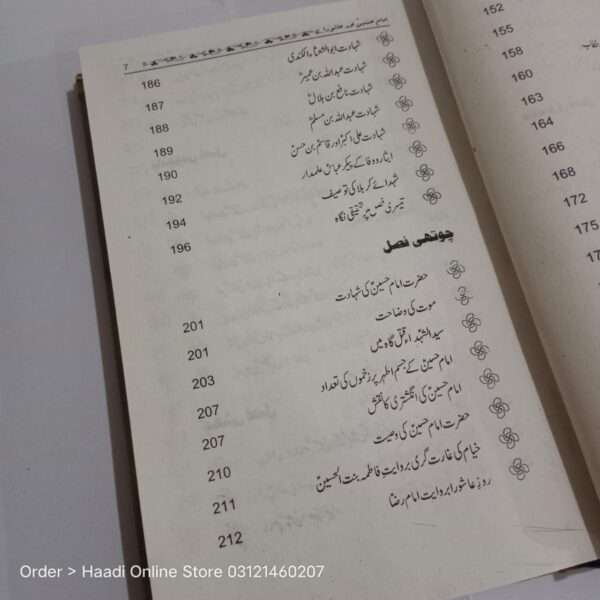 7
شہادت ابوالشعثاء الکندی 186
شہادت عبداللہ بن عمیر 187
شہادت نافع بن ہلال 188
شہادت عبداللہ بن مسلم 189
شہادت علی اکبر اور قاسم بن حسن 190
ایثار و وفا کے پیکر عباس علمدار 192
شہدائے کربلا کی توصیف 194
تیسری فصل پر تحقیقی نگاہ 196
چوتھی فصل
حضرت امام حسینؑ کی شہادت 201
موت کی وضاحت 201
سید الشہداء قتل گاہ میں 203
امام حسینؑ کے جسم اطہر پر زخموں کی تعداد 207
امام حسینؑ کی انگشتری کا نقش 207
حضرت امام حسینؑ کی وصیت 210
خیام کی غارت گری بروایت فاطمہ بنت الحسینؑ 211
روز عاشورا بروایت امام رضاؑ 212
152
155
158
160
163
164
166
168
172
175
Order > Haadi Online Store 03121460207